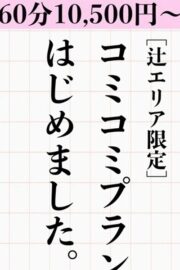 60分10,500円〜
[辻エリア限定]
コミコミプラン
はじめました。